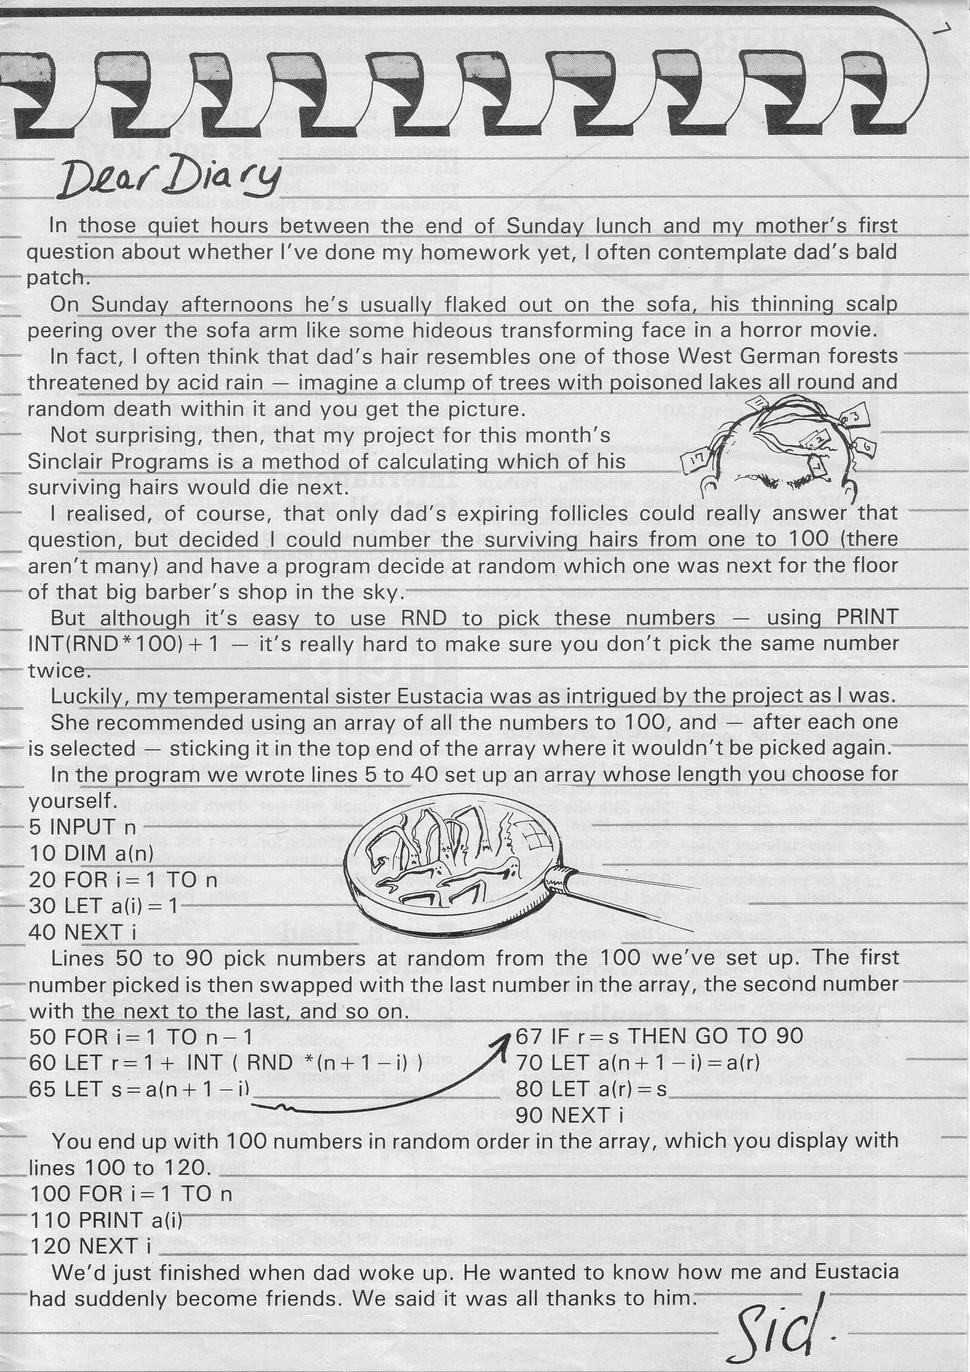 7
Dear Diary
In those quiet hours between the end of Sunday lunch and my mother's first
question about whether I've done my homework yet, I often contemplate dad's bald
patch.
On Sunday afternoons he's usually flaked out on the sofa, his thinning scalp
peering over the sofa arm like some hideous transforming face in a horror movie.
In fact, I often think that dad's hair resembles one of those West German forests
threatened by acid rain — imagine a clump of trees with poisoned lakes all round and
random death within it and you get the picture.
Not surprising, then, that my project for this month's
Sinclair Programs is a method of calculating which of his
surviving hairs would die next.
I realised, of course, that only dad's expiring follicles could really answer that
question, but decided I could number the surviving hairs from one to 100 (there
aren't many) and have a program decide at random which one was next for the floor
of that big barber's shop in the sky.
But although it's easy to use RND to pick these numbers — using PRINT
INT(RND*100)+1 — it's really hard to make sure you don't pick the same number
twice.
Luckily, my temperamental sister Eustacia was as intrigued by the project as I was.
She recommended using an array of all the numbers to 100, and — after each one
is selected — sticking it in the top end of the array where it wouldn't be picked again.
In the program we wrote lines 5 to 40 set up an array whose length you choose for
yourself.
5 INPUT n
10 DIM a(n)
20 FOR i=1 TO n
30 LET a(i)=1
40 NEXT i
Lines 50 to 90 pick numbers at random from the 100 we've set up. The first
number picked is then swapped with the last number in the array, the second number
with the next to the last, and so on.
50 FOR i=1 TO n-1
60 LET r=1+ INT ( RND *(n+1-i) )
65 LET s=a(n+1-i)
67 IF r=s THEN GO TO 90
70 LET a(n+1-i)=a(r)
80 LET a(r)=s
90 NEXT i
You end up with 100 numbers in random order in the array, which you display with
lines 100 to 120.
100 FOR i=1 TO n
110 PRINT a(i)
120 NEXT i
We'd just finished when dad woke up. He wanted to know how me and Eustacia
had suddenly become friends. We said it was all thanks to him.
Sid.